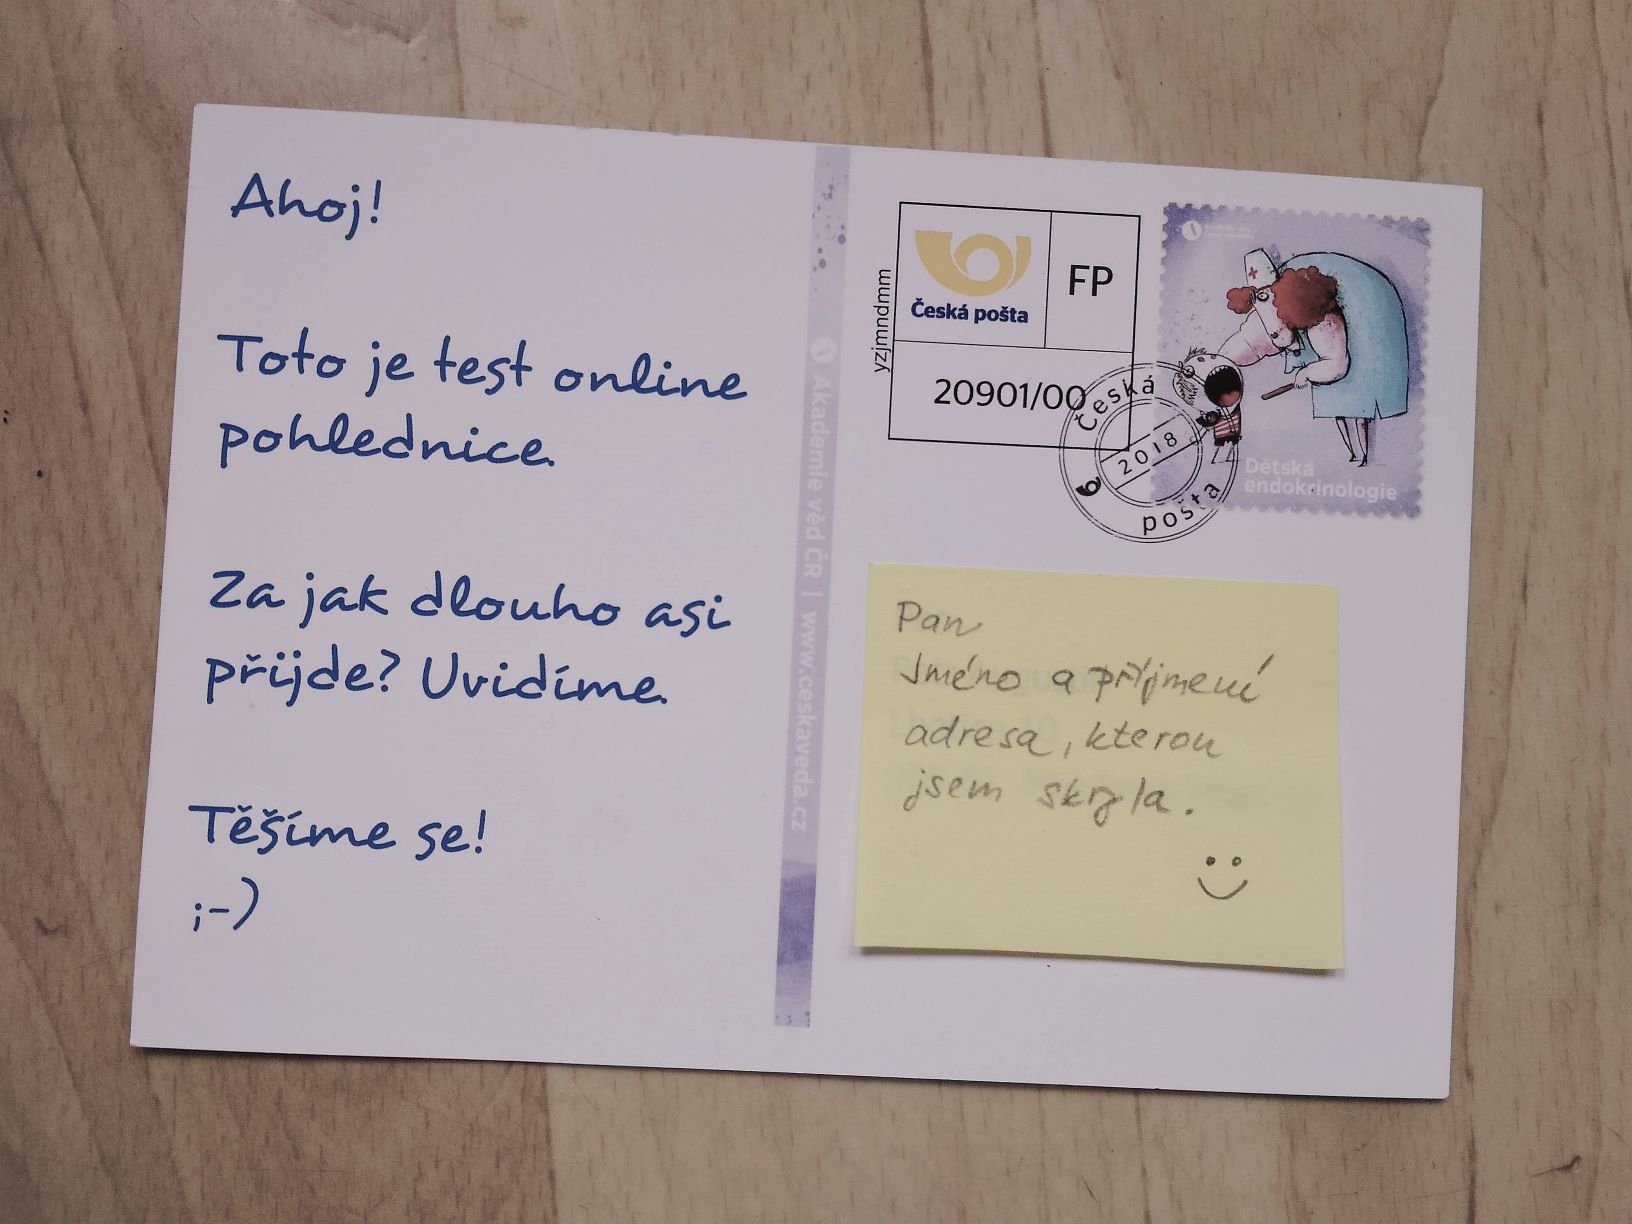 Ahoj!
Toto je test online
pohlednice.
Za jak dlouho asi
přijde? Uvidíme.
Těšíme se!
;-)
Akademie věd ČR | www.ceskaveda.cz
yzjmndmm
Česká pošta
FP
20901/00
Česká
6 2018
pošta
Dětská
endokrinologie
Pan
Jméno a příjmení
adresa, kterou
jsem skryla.